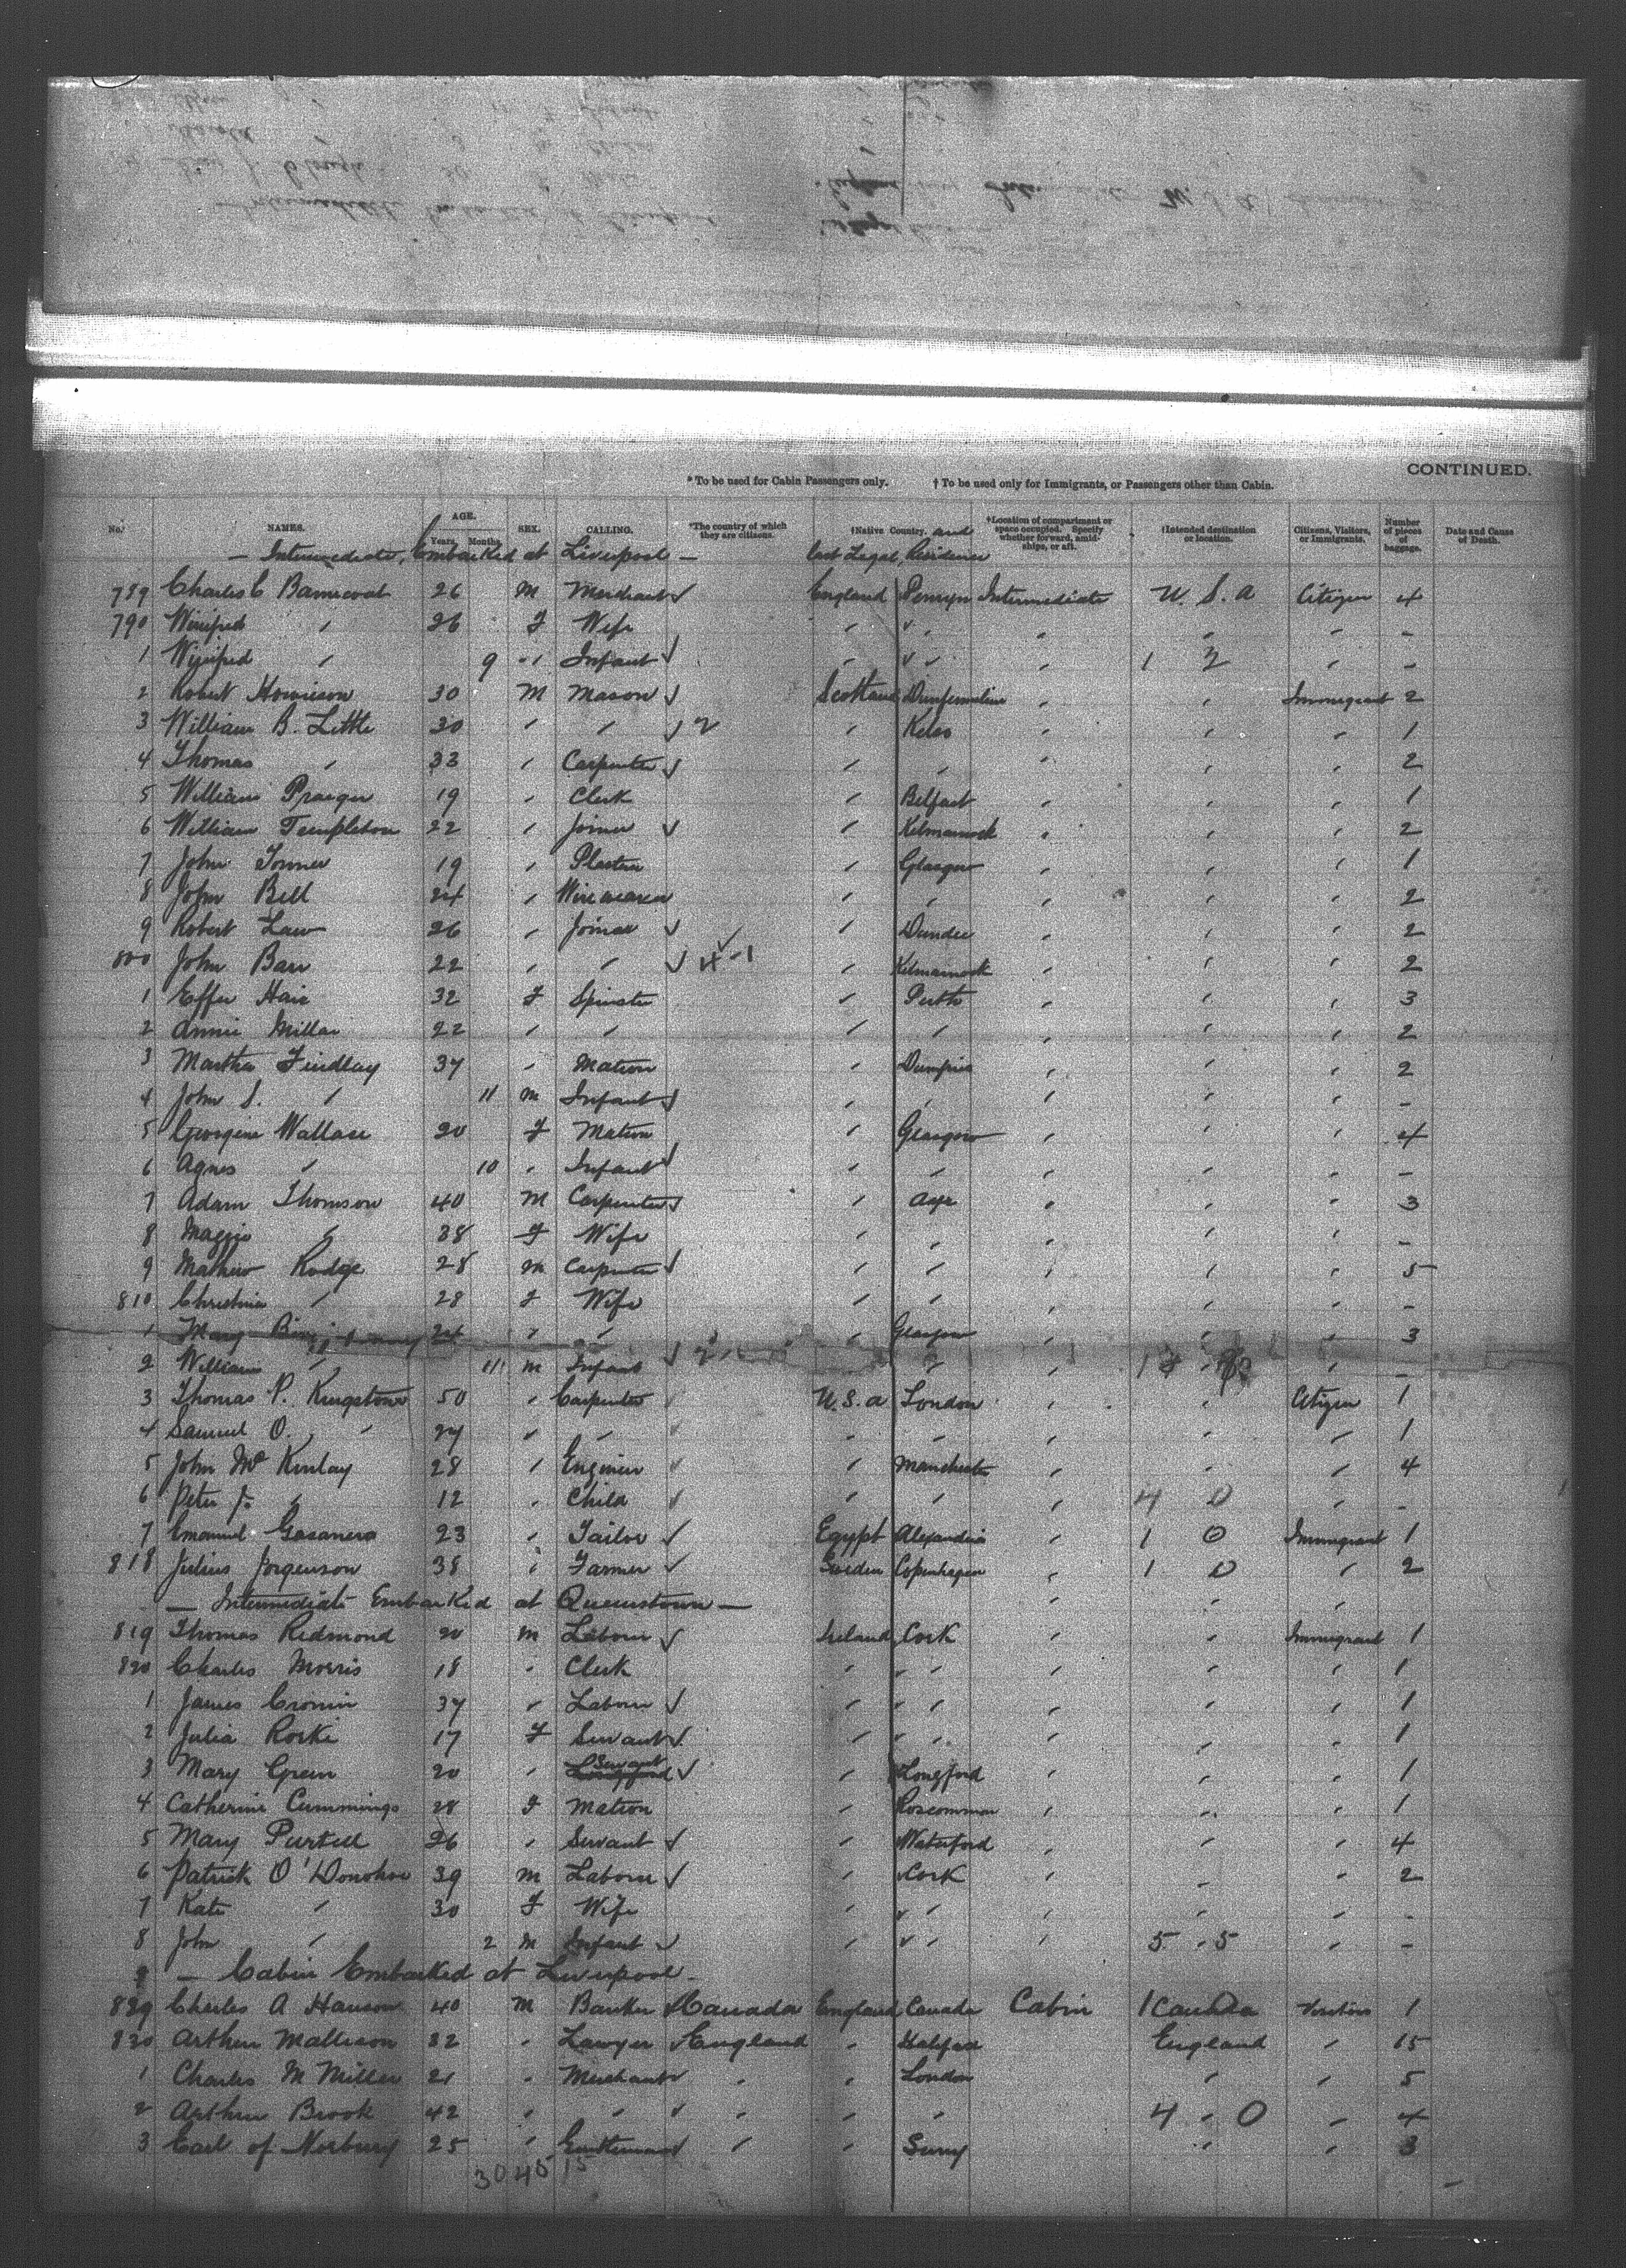 CONTINUED.
* To be used for Cabin Passengers only. † To be used only for Immigrants, or Passengers other than Cabin.
No. NAMES. AGE. Years. Months. SEX. CALLING. *The country of which they are citizens. †Native Country. and last Legal Residence †Location of compartment or space occupied. Specify whether forward, amidships, or aft. †Intended destination or location. Citizens, Visitors, or Immigrants. Number of pieces of baggage. Date and Cause of Death.
— Intermediate, Embarked at Liverpool —
789 Charles C Barnicoat 26 M Merchant ✓ England Penryn Intermediate U. S. A Citizen 4
790 Winifred " 26 F Wife " " " " " -
1 Winifred " 9 " Infant ✓ " " " 1 " -
2 Robert Howieson 30 M Mason ✓ Scotland Dunfermline " " Immigrant 2
3 William B. Little 30 " " ✓ 2 " Kelso " " " 1
4 Thomas " 33 " Carpenter ✓ " " " " " 2
5 William Praeger 19 " Clerk " Belfast " " " 1
6 William Templeton 22 " Joiner ✓ " Kilmarnock " " " 2
7 John 19 " Plasterer " Glasgow " " " 1
8 John Bell 24 " " " " " " 2
9 Robert Law 26 " Joiner ✓ " Dundee " " " 2
800 John Barr 22 " " ✓ 4-1 " Kilmarnock " " " 2
1 Effie Hair 32 F Spinster " Perth " " " 3
2 Annie Millar 22 " " " " " " " 2
3 Martha Findlay 37 " Matron " Dumfries " " " 2
4 John S. " 11 M Infant ✓ " " " " " -
5 Georgina Wallace 20 F Matron " Glasgow " " " 4
6 Agnes " 10 " Infant ✓ " " " " " -
7 Adam Thomson 40 M Carpenter ✓ " Ayr " " " 3
8 Maggie " 38 F Wife " " " " " -
9 Mathew Rodge 28 M Carpenter ✓ " " " " " 5
810 Christina " 28 F Wife " " " " " -
1 Mary 24 " " " Glasgow " " " 3
2 William " 11 M Infant ✓ " " " " -
3 Thomas P. Kingstone 50 " Carpenter ✓ U.S.A London " " Citizen 1
4 Samuel O. " 27 " " ✓ " " " " " 1
5 John McKinlay 28 " Engineer ✓ " Manchester " " " 4
6 Peter J. " 12 " Child ✓ " " " 4 0 " -
7 Emanuel 23 " Tailor ✓ Egypt Alexandria " 1 0 Immigrant 1
818 Julius Jorgenson 38 " Farmer ✓ Sweden Copenhagen " 1 0 " 2
— Intermediate Embarked at Queenstown — " " "
819 Thomas Redmond 20 M Laborer ✓ Ireland Cork " " Immigrant 1
820 Charles Morris 18 " Clerk " " " " " 1
1 James Cronin 37 " Laborer ✓ " " " " " 1
2 Julia Rorke 17 F Servant ✓ " " " " " 1
3 Mary Green 20 " Servant ✓ " Longford " " " 1
4 Catherine Cummings 28 F Matron " Roscommon " " " 1
5 Mary Purtell 26 " Servant ✓ " Waterford " " " 4
6 Patrick O'Donohoe 39 M Laborer ✓ " Cork " " " 2
7 Kate " 30 F Wife " " " " " -
8 John " 2 M Infant ✓ " " " 5 " 5 " -
9 — Cabin Embarked at Liverpool —
829 Charles A Hanson 40 M Banker ✓ Canada England Canada Cabin 1 Canada Visitors 1
830 Arthur Mallison 32 " Lawyer ✓ England " Halifax England " 15
1 Charles M Miller 21 " Merchant ✓ " " London " " 5
2 Arthur Brook 42 " " ✓ " " " 4 " 0 " 4
3 Earl of Norbury 25 " Gentleman ✓ " " Surry " " 3
30 45 15